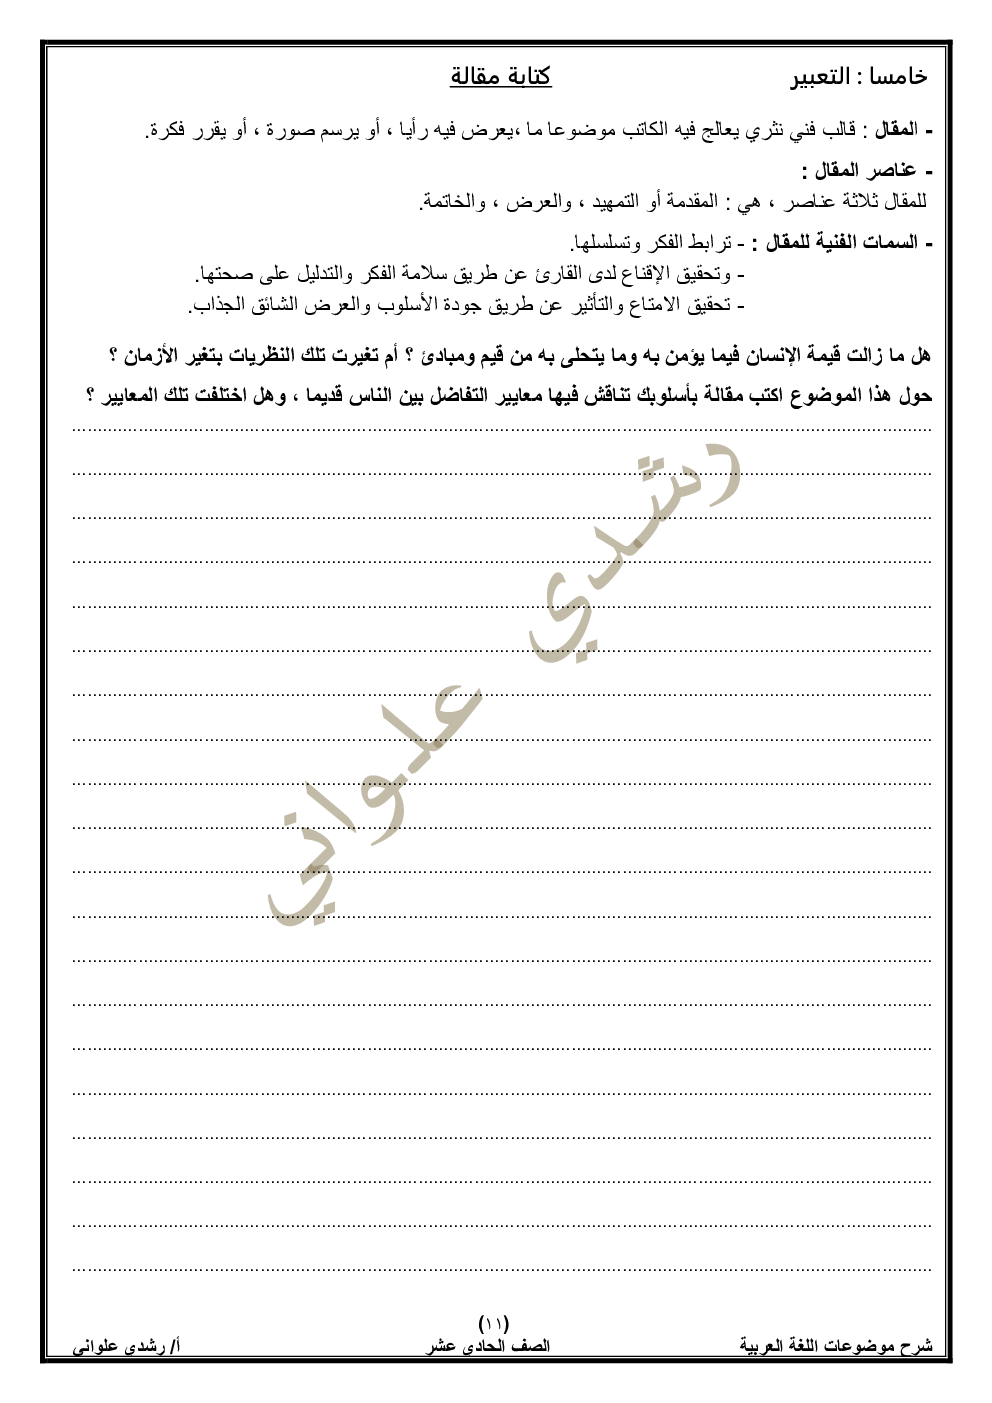 خامسا : التعبير كتابة مقالة
- المقال : قالب فني نثري يعالج فيه الكاتب موضوعا ما ،يعرض فيه رأيا ، أو يرسم صورة ، أو يقرر فكرة.
- عناصر المقال :
للمقال ثلاثة عناصر ، هي : المقدمة أو التمهيد ، والعرض ، والخاتمة.
- السمات الفنية للمقال : - ترابط الفكر وتسلسلها.
- وتحقيق الإقناع لدى القارئ عن طريق سلامة الفكر والتدليل على صحتها.
- تحقيق الامتاع والتأثير عن طريق جودة الأسلوب والعرض الشائق الجذاب.
هل ما زالت قيمة الإنسان فيما يؤمن به وما يتحلى به من قيم ومبادئ ؟ أم تغيرت تلك النظريات بتغير الأزمان ؟
حول هذا الموضوع اكتب مقالة بأسلوبك تناقش فيها معايير التفاضل بين الناس قديما ، وهل اختلفت تلك المعايير ؟
رشدي علواني
(١١)
شرح موضوعات اللغة العربية الصف الحادي عشر أ/ رشدي علواني